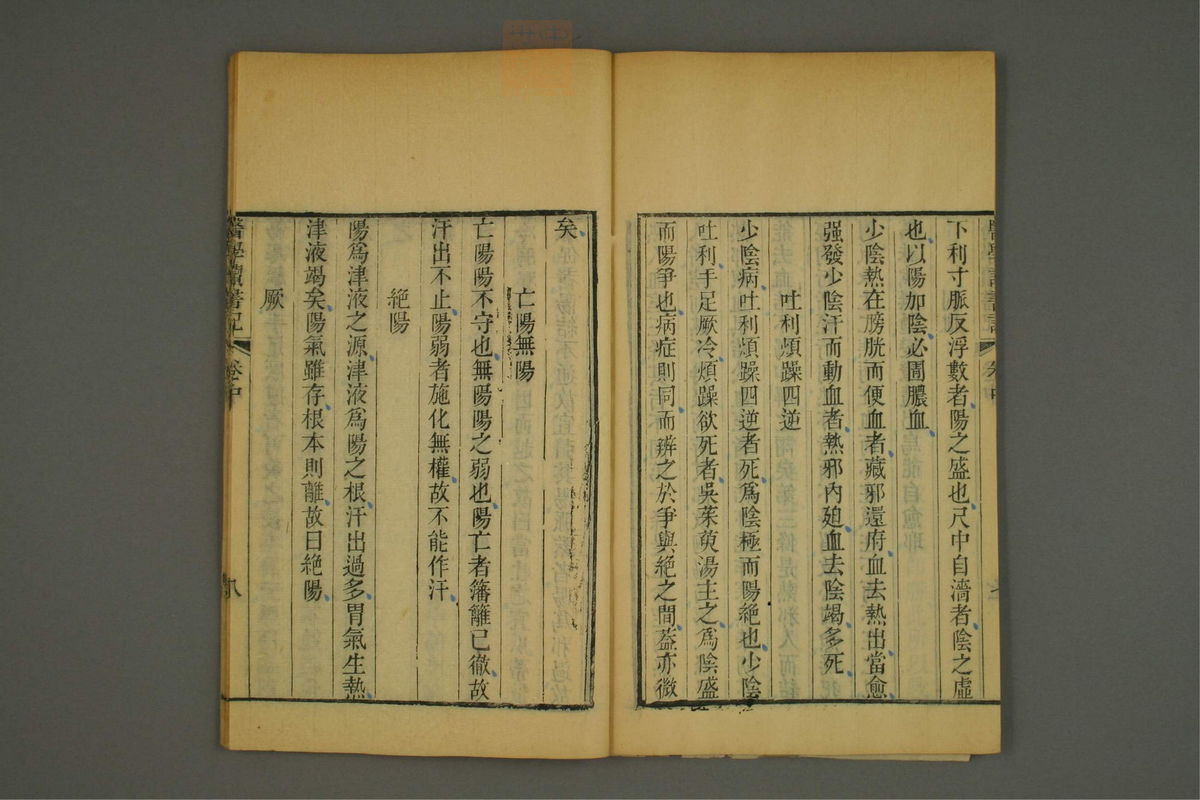 下利寸脈反浮數者陽之盛也尺中自濇者陰之虛
也以陽加陰必圊膿血
少陰熱在膀胱而便血者藏邪還府血去熱出當愈
强發少陰汗而動血者熱邪內廹血去陰竭多死
吐利煩躁四逆
少陰病吐利煩躁四逆者死爲陰極而陽絶也少陰
吐利手足厥冷煩躁欲死者吳茱萸湯主之爲陰盛
而陽爭也病症則同而辨之於爭與絶之間葢亦微
矣
亡陽無陽
亡陽陽不守也無陽陽之弱也陽亡者籓籬已徹故
汗出不止陽弱者施化無權故不能作汗
絶陽
陽爲津液之源津液爲陽之根汗出過多胃氣生熱
津液竭矣陽氣雖存根本則離故曰絶陽
厥
醫學讀書記
卷中
八